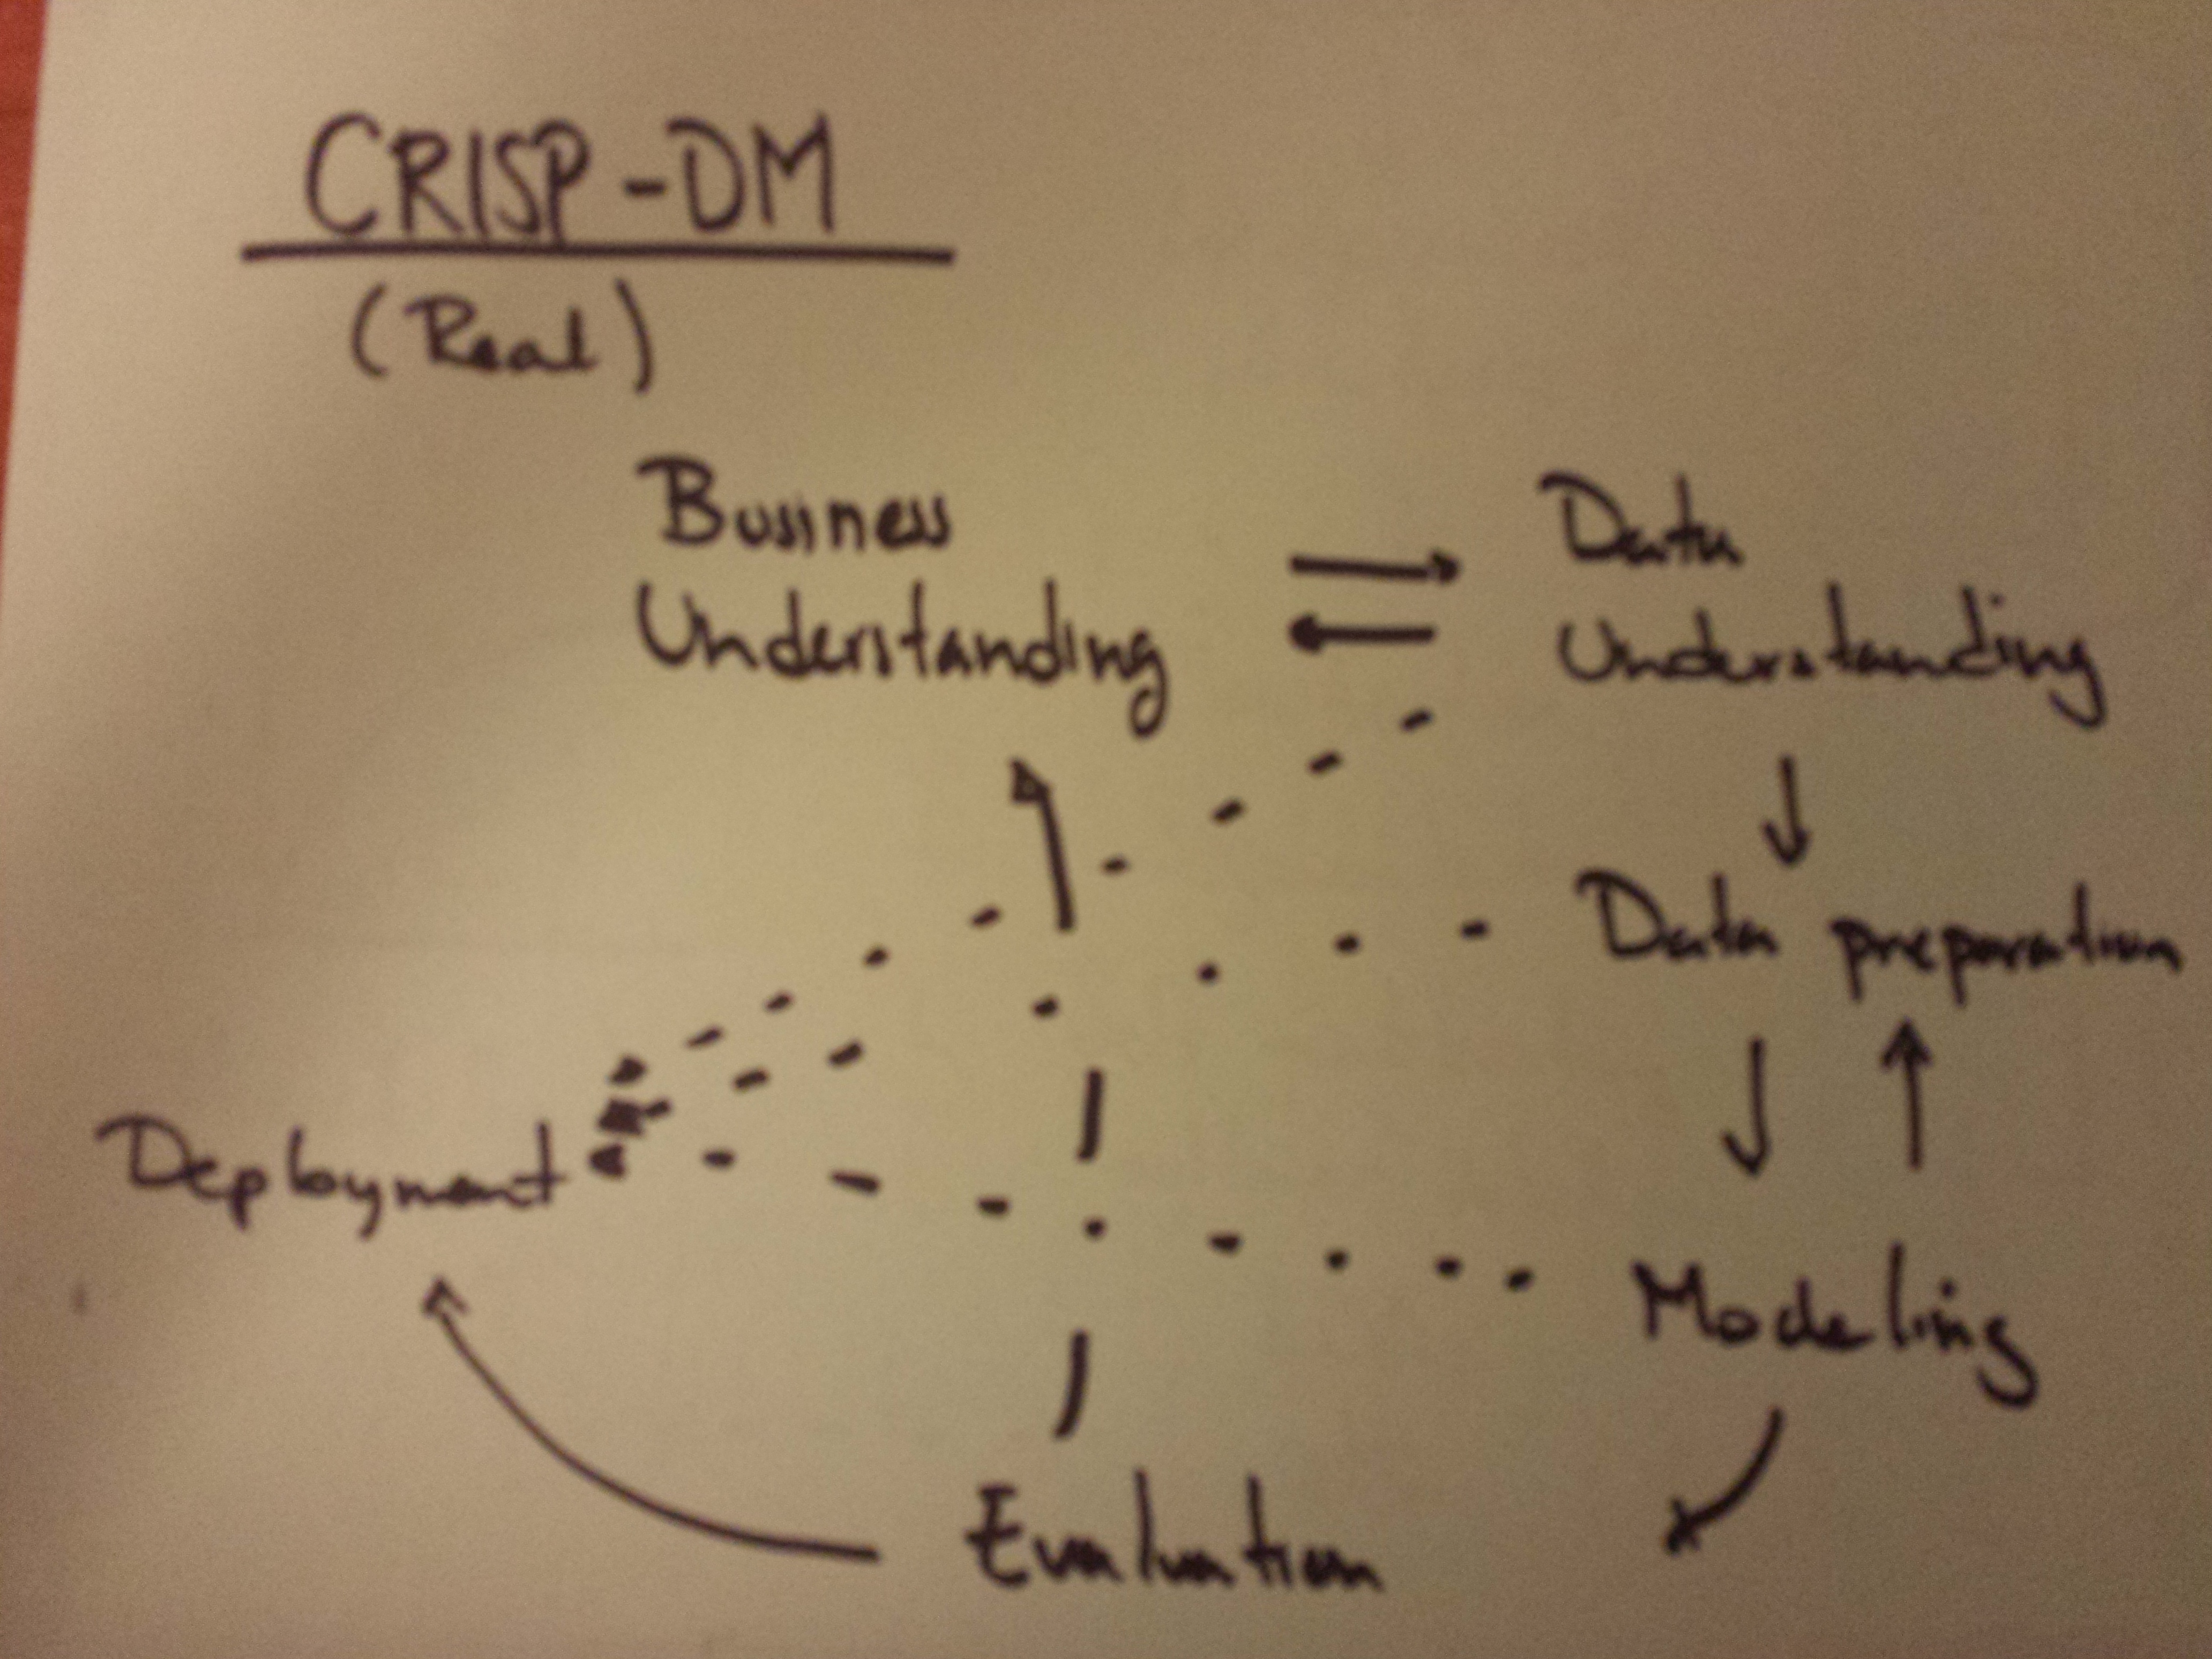 CRISP-DM
(Real)
Business
Understanding
Data
Understanding
Data preparation
Deployment
Modeling
Evaluation